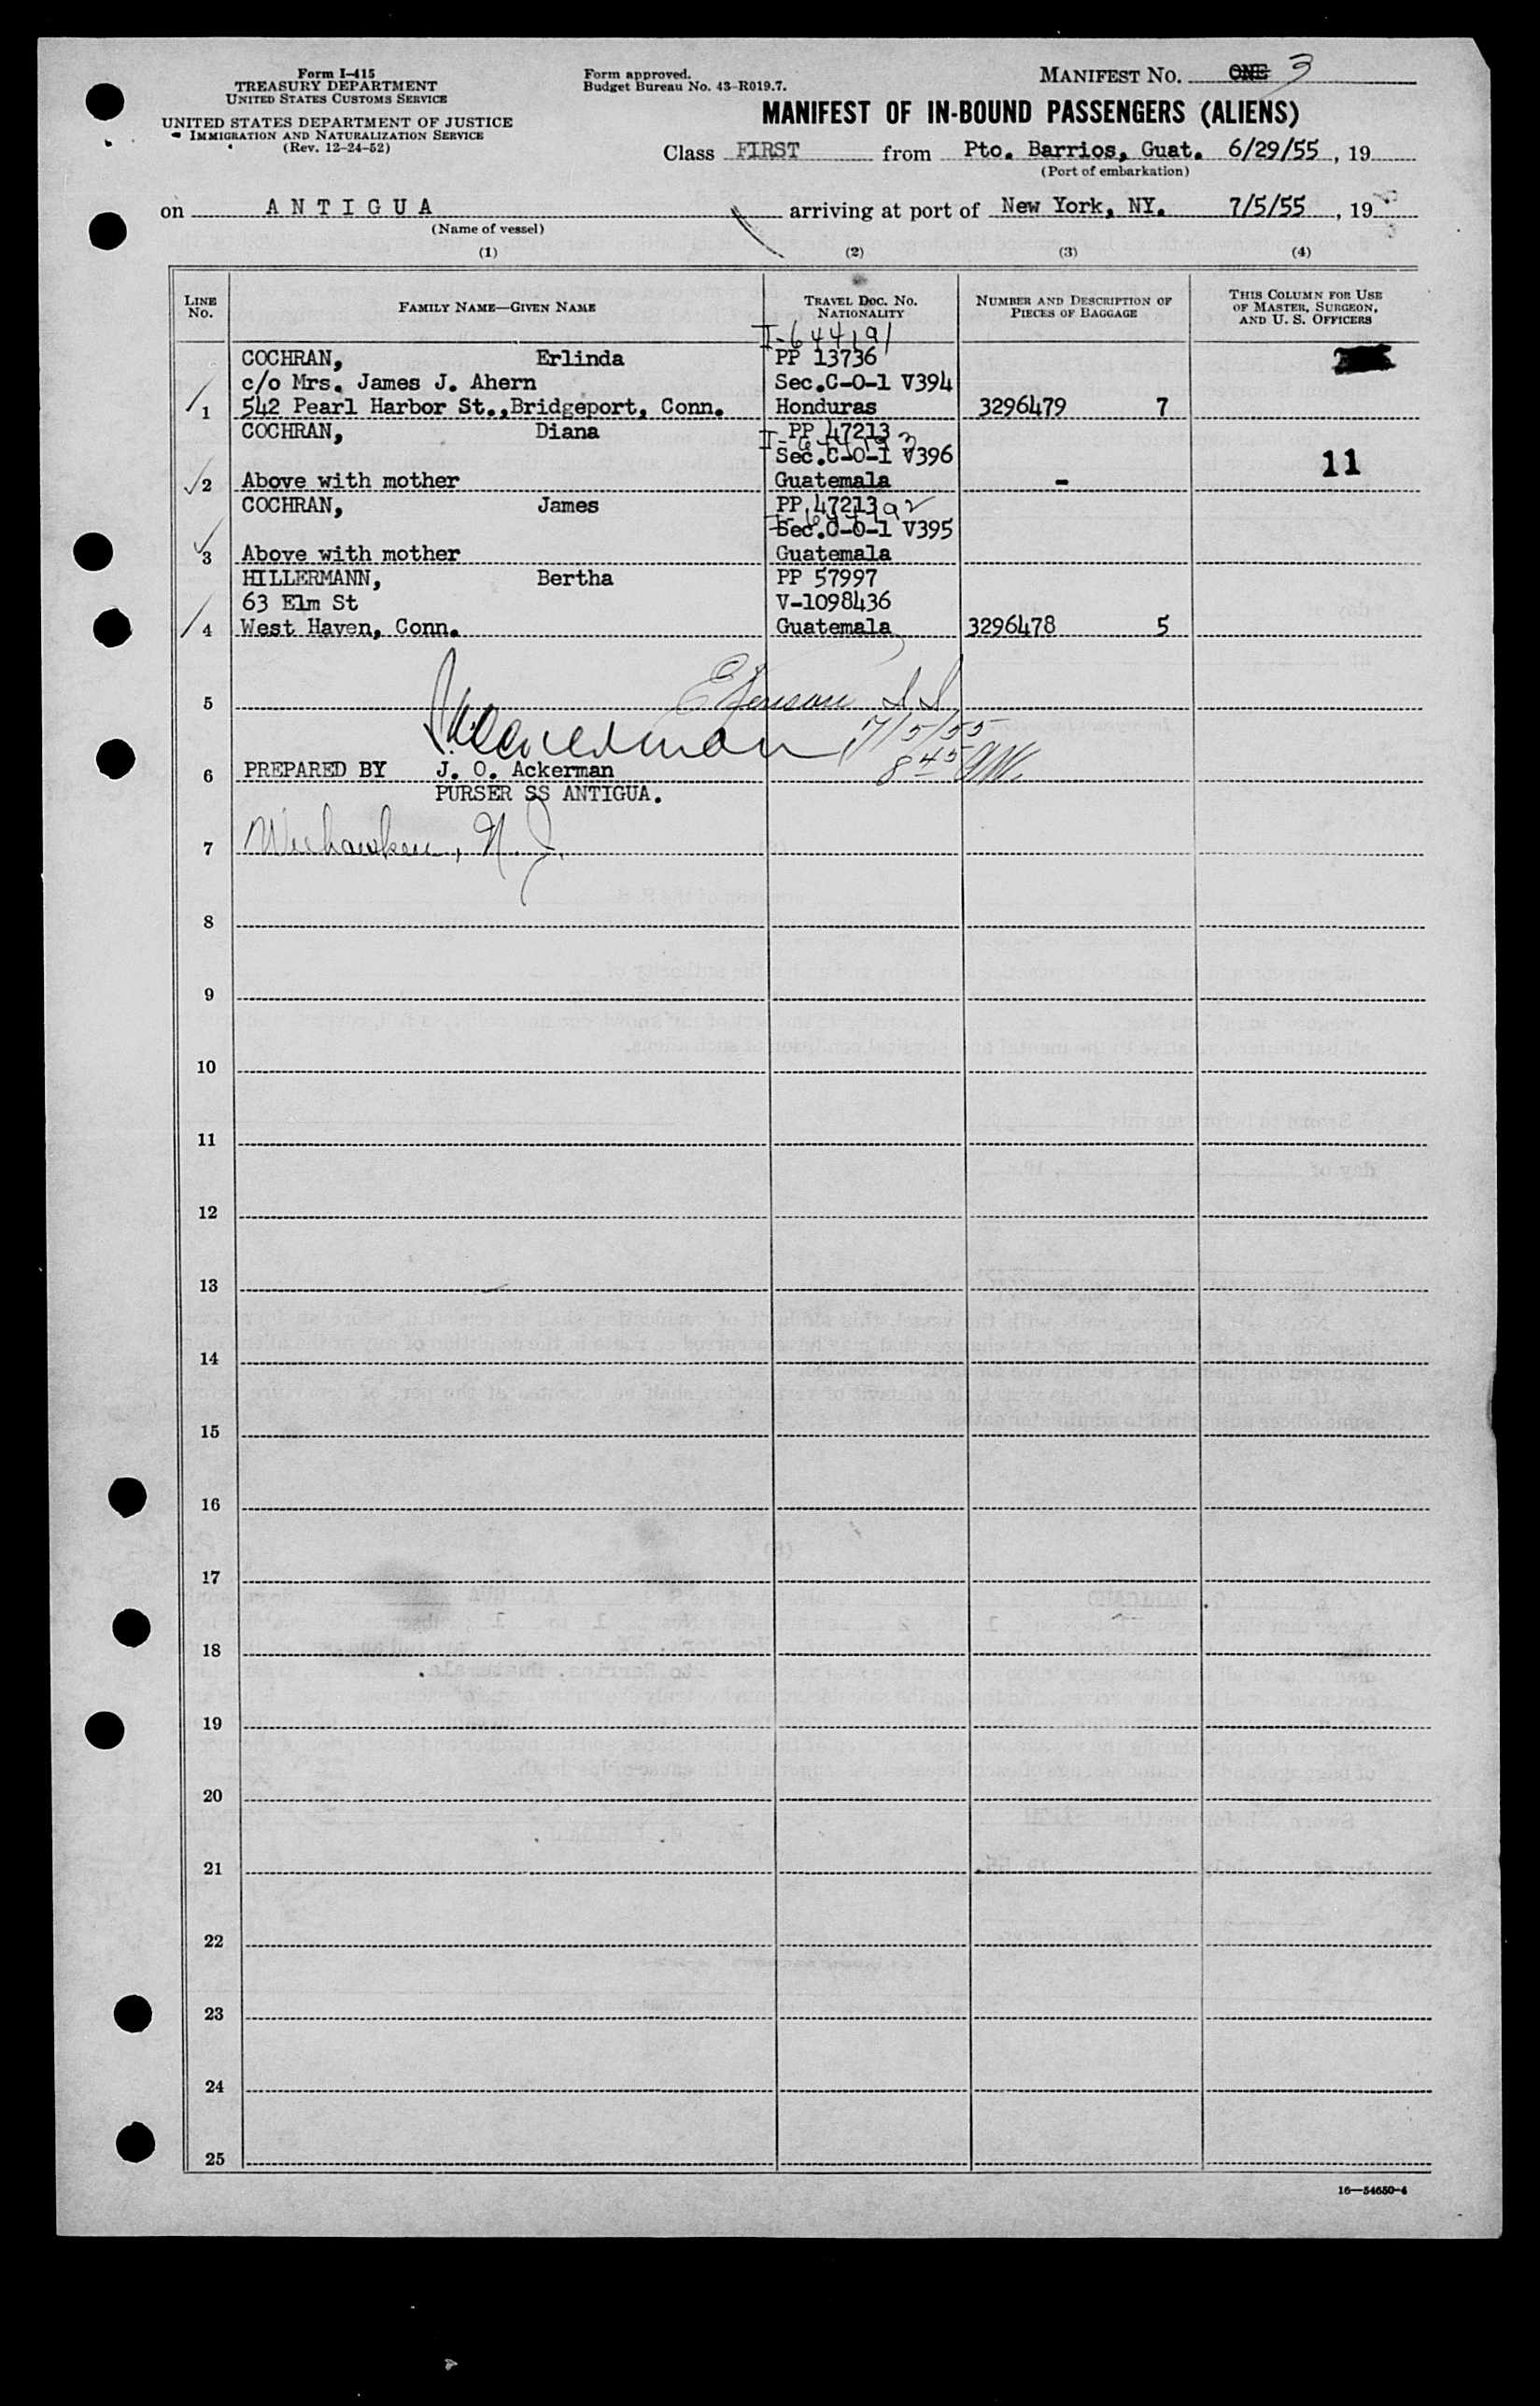 Form I-415
TREASURY DEPARTMENT
UNITED STATES CUSTOMS SERVICE
UNITED STATES DEPARTMENT OF JUSTICE
IMMIGRATION AND NATURALIZATION SERVICE
(Rev. 12-24-52)
Form approved.
Budget Bureau No. 43-R019.7.
MANIFEST NO. ONE 3
MANIFEST OF IN-BOUND PASSENGERS (ALIENS)
Class FIRST from Pto. Barrios, Guat. 6/29/55, 19
(Port of embarkation)
on ANTIGUA arriving at port of New York, NY. 7/5/55, 19
(Name of vessel)
(1) (2) (3) (4)
LINE NO. FAMILY NAME—GIVEN NAME TRAVEL DOC. NO. NATIONALITY NUMBER AND DESCRIPTION OF PIECES OF BAGGAGE THIS COLUMN FOR USE OF MASTER, SURGEON, AND U. S. OFFICERS
II-644191
COCHRAN, Erlinda PP 13736
c/o Mrs. James J. Ahern Sec.C-O-1 V394
1 542 Pearl Harbor St.,Bridgeport, Conn. Honduras 3296479 7
COCHRAN, Diana PP 47213
Sec.C-O-1 V396
11
2 Above with mother Guatemala -
COCHRAN, James PP 47213
Sec.C-O-1 V395
3 Above with mother Guatemala
HILLERMANN, Bertha PP 57997
63 Elm St V-1098436
4 West Haven, Conn. Guatemala 3296478 5
5
7/5/55
8 45 AM
6 PREPARED BY J. O. Ackerman
PURSER SS ANTIGUA.
7 Weehawken, N.J.
8
9
10
11
12
13
14
15
16
17
18
19
20
21
22
23
24
25
16—54650-4